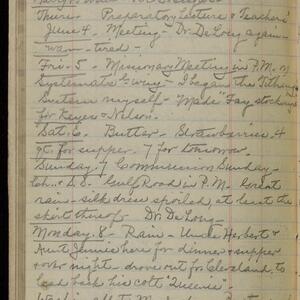 Thurs. Preparatory Lecture & Teachers'
June 4. Meeting - Dr. DeLong again -
warm - tired -
Fri. 5 - Missionary Meeting in P.M. on
Systematic Giving - I began the Tithing
System myself - Made Fay stockings
for Keyes & Nelson.
Sat. 6. Butter - Strawberries 4
qt. for supper. 7 for tomorrow.
Sunday. 7 Communion Sunday -
Ch. & S.S. Gulf Road in P.M. Great
rain - silk dress spoiled, at least the
skirt thereof Dr. DeLong -
Monday. 8 - Rain - Uncle Herbert &
Aunt Jennie here for dinner & supper
& over night - drove out for Cleveland to
lead back his colt "Lucende"